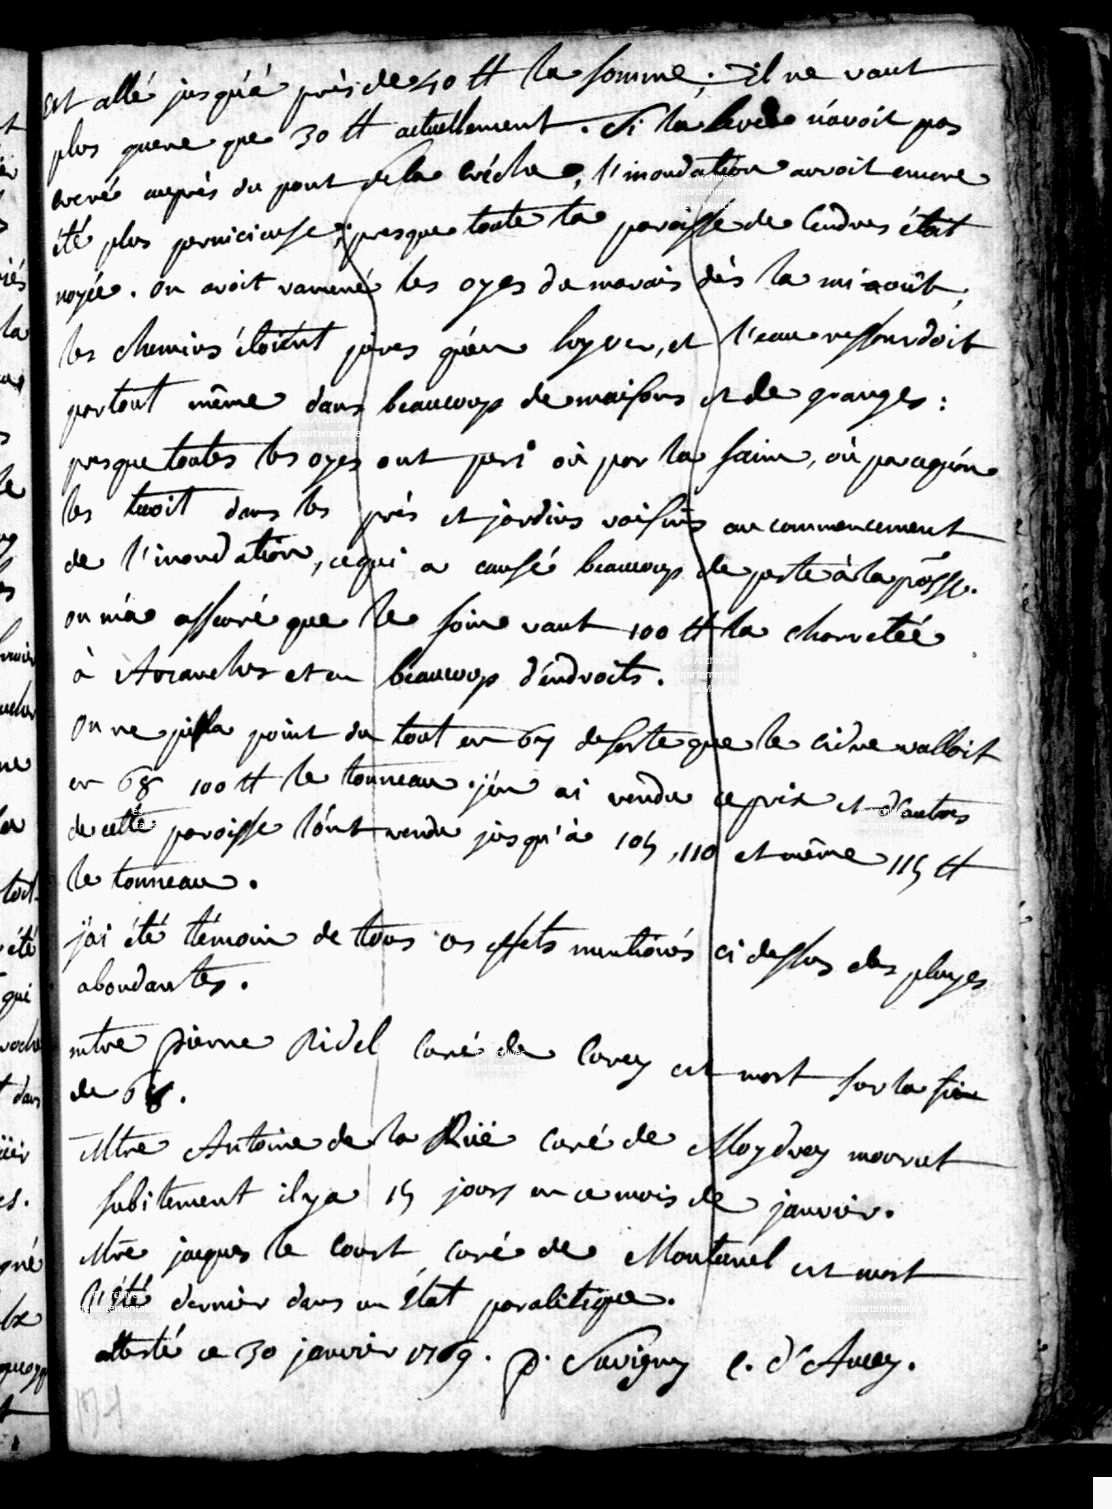 est allé jusqu'à près de 40 tt la somme ; il ne vaut
plus guere que 30 tt actuellement . si la levée n'avoit pas
crevé auprès du pont de la Créche, l'inondation auroit encore
été plus pernicieuse ; presque toute la paroisse de Cendres étoit
noyée . on avoit ramené les oyes du marais dès la mi-août,
les chemins étoient pires qu'en hyver, et l'eau ressourdoit
partout même dans beaucoup de maisons et de granges :
presque toutes les oyes ont peri ou par la faim, ou parcequ'on
les tuoit dans les prés et jardins voisins au commencement
de l'inondation, ce qui a causé beaucoup de perte à la pôsse.
on m'a assuré que le foin vaut 100 tt la charretée
à Avranches et en beaucoup d'endroits .
On ne pila point du tout en 67 de sorte que le cidre valloit
en 68 100 tt le tonneau . j'en ai vendu ce prix et d'autres
de cette paroisse l'ont vendu jusqu'à 105, 110 et même 115 tt
le tonneau .
j'ai été témoin de tous ces effets mentionés ci dessus des pluyes
abondantes .
mtre pierre Ridel Curé de Curey est mort sur la fin
de 68 .
Mtre Antoine de la Rüe curé de Moydrey mourut
subitement il y a 15 jours en ce mois de janvier .
Mtre jacques le Court curé de Montanel est mort
l'été dernier dans un état paralitique .
attesté ce 30 janvier 1769 . p. Savigny c. d'Aucey .
© Archives
départementales
de la Manche